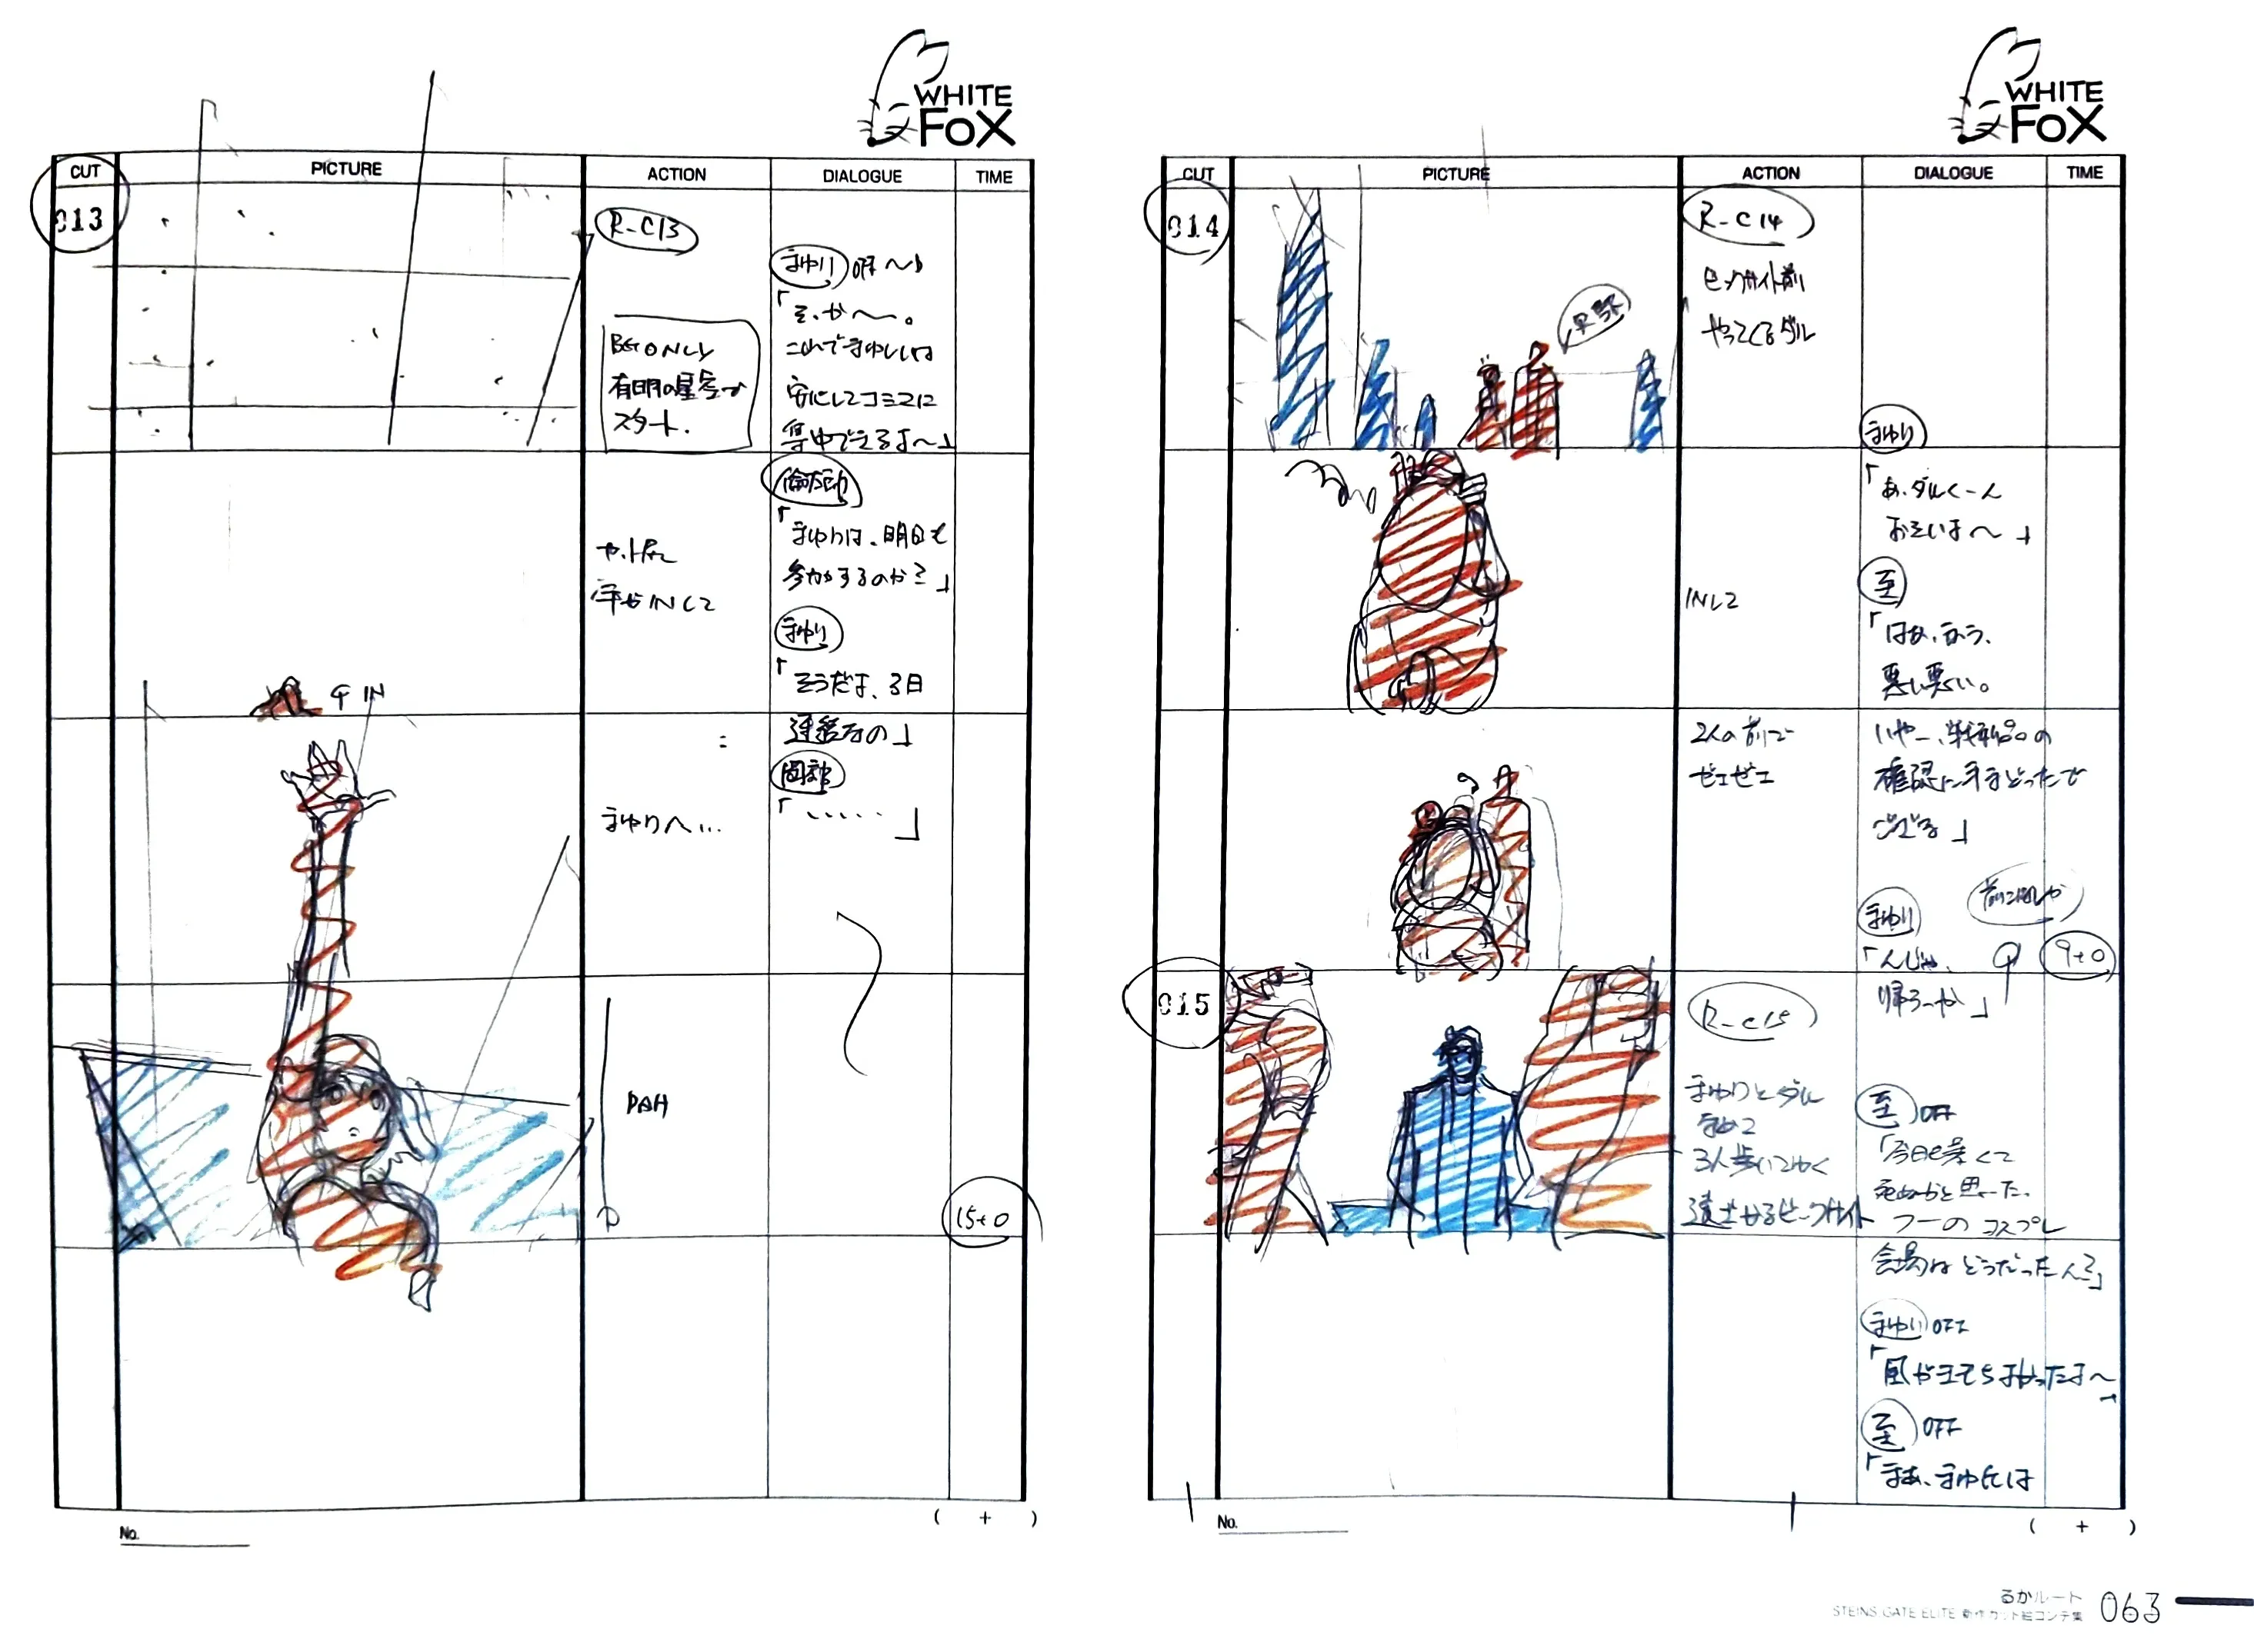 WHITE
FOX
CUT
PICTURE
ACTION
DIALOGUE
TIME
013
R-C13
BG ONLY
有明の星空で
スタート.
まゆり OFF
「そっか〜。
これでまゆしぃは
安心してコミマに
集中できるよ〜」
倫太郎
「まゆりは、明日も
参加するのか？」
IN して
まゆり
「そうだよ、3日
連続なの」
IN
岡部
「‥‥‥」
まゆりへ…
PAN
15+0
No.
( + )
WHITE
FOX
CUT
PICTURE
ACTION
DIALOGUE
TIME
014
R-C14
ビッグサイト前
やってくるダル
まゆり
「あ、ダルくーん
おそいよ〜」
INして
至
「はぁ、ふう、
悪い悪い。
2人の前で
ゼェゼェ
いやー、戦利品の
確認に手まどったで
ござる」
まゆり
「んじゃ、
帰ろーか」
9+0
015
R-C15
まゆりとダル
含めて
3人歩いてゆく
遠ざかるビッグサイト
至 OFF
「今日も暑くて
死ぬかと思った。
つーの コスプレ
会場は どうだったん？」
まゆり OFF
「風がきもちよかったよ〜」
至 OFF
「まあ、まゆ氏は
No.
( + )
るかルート
STEINS;GATE ELITE 新作カット絵コンテ集
063